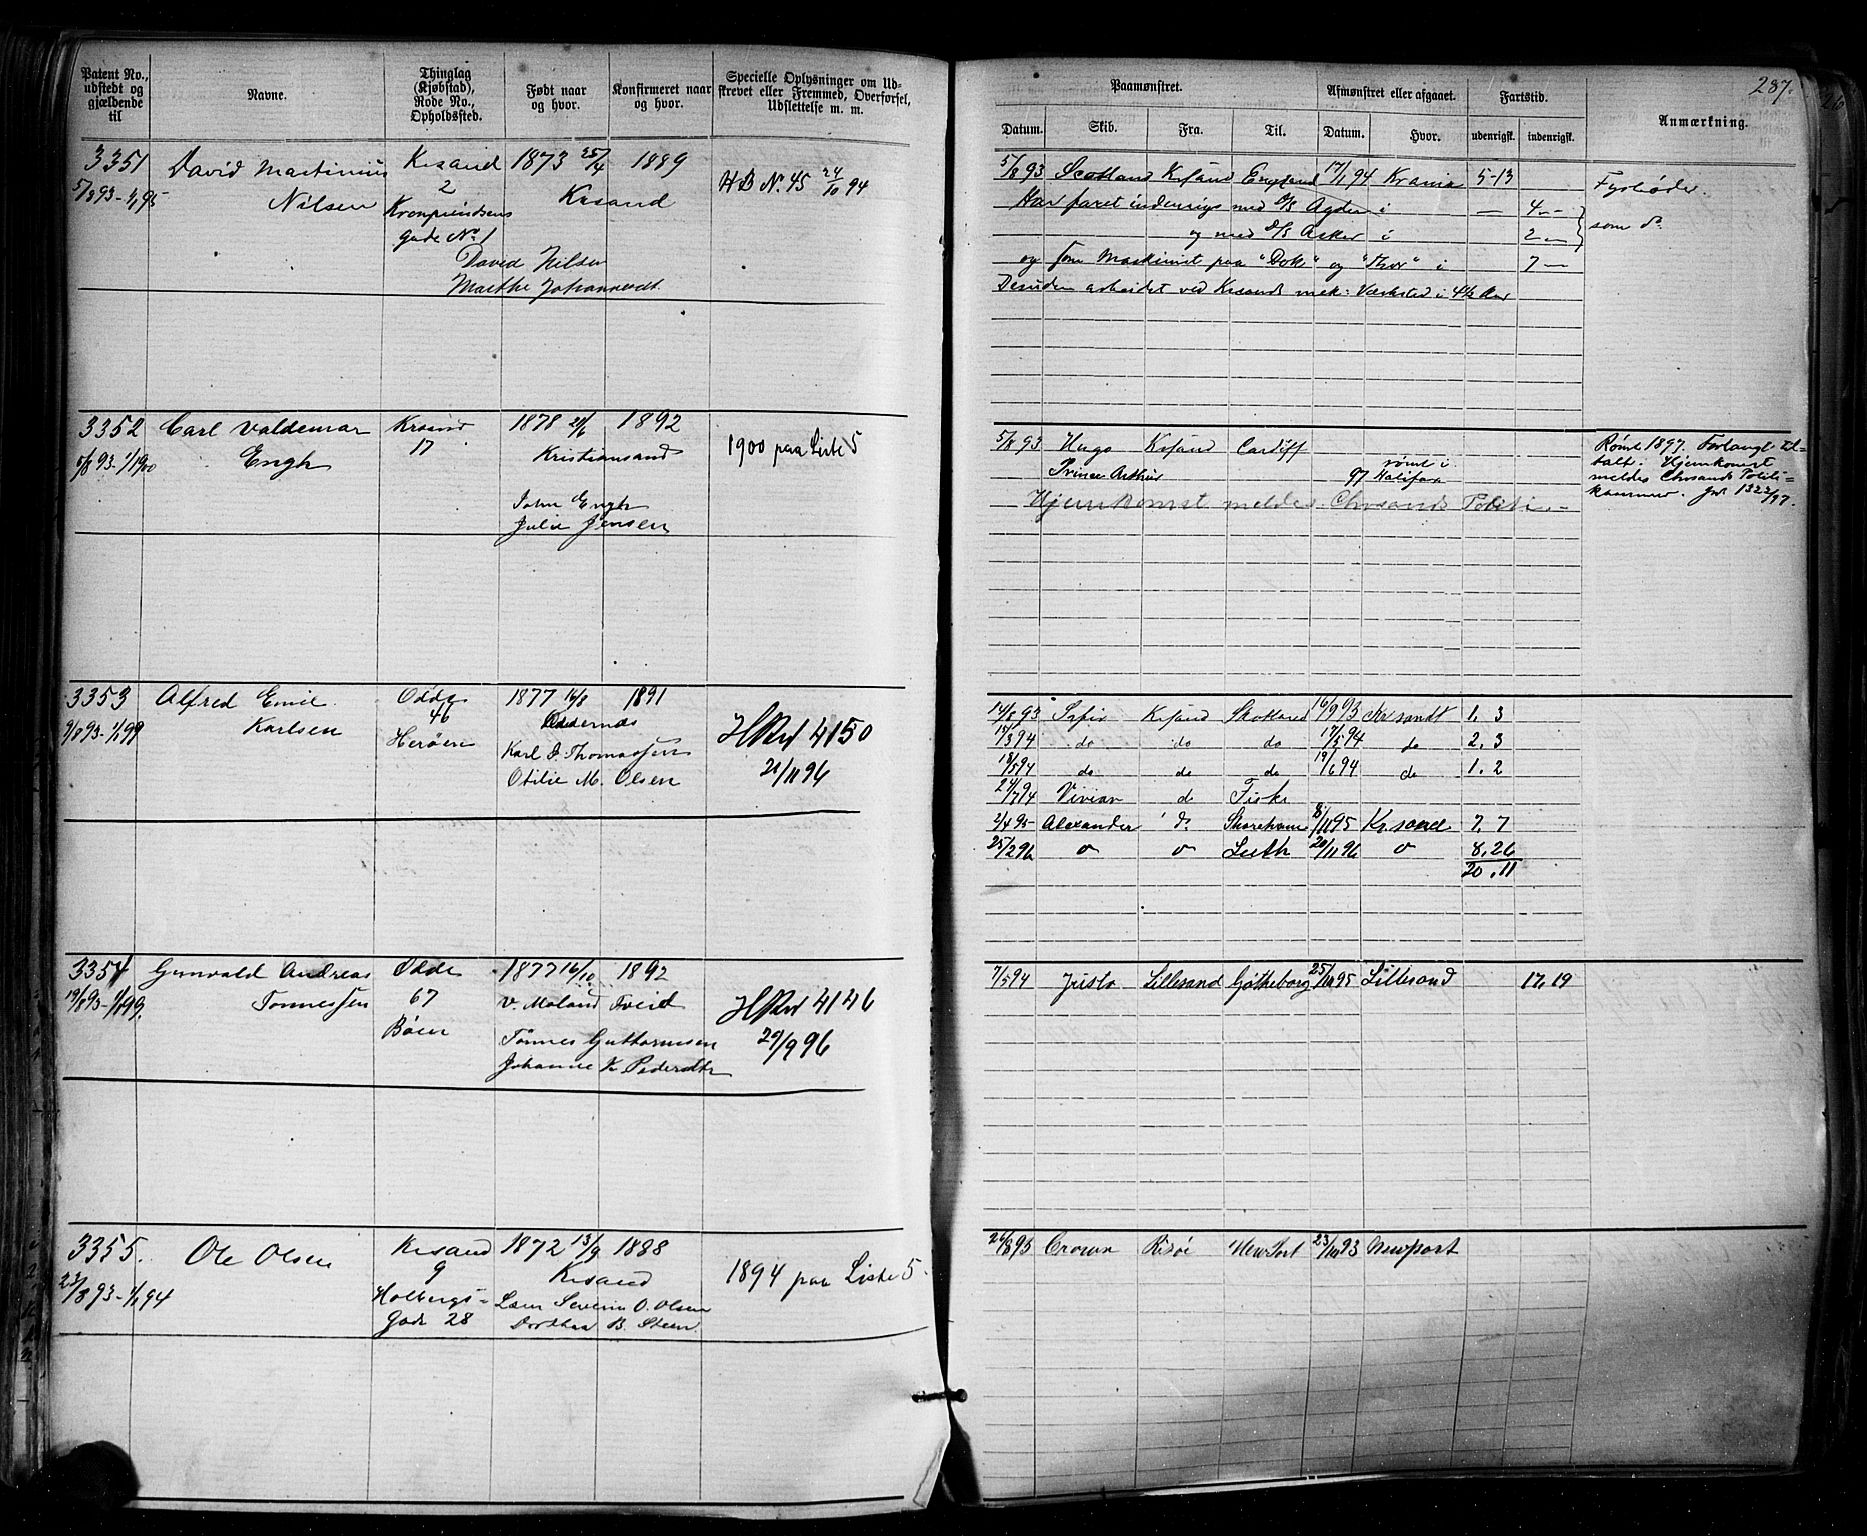 287.
Patent No., udstedt og gjældende til
Navne.
Thinglag (Kjøbstad), Rode No., Opholdssted.
Født naar og hvor.
Konfirmeret naar og hvor.
Specielle Oplysninger om Udskrevet eller Fremmed, Overførsel, Udslettelse m. m.
Paamønstret.
Afmønstret eller afgaaet.
Fartstid.
Anmærkning.
Datum. Skib. Fra. Til. Datum. Hvor. udenrigsk. indenrigsk.
3351 David Martinius Krsand 1873 25/4 1889
5/8 93 - 1/1 95 Nilsen 2 Krsand HB No. 45 24/10 94
Kronprindsens
gade No. 1
David Nilsen
Marthe Johannesdt.
5/8 93 Scotland Krsand England 17/1 94 Krania 5-13 Fyrbøder
Har faret indenrigs med D/S Agder i — 4 — som do.
og med D/S Asker i 2 —
og som Maskinist paa "Dok" og "Thor" i 7 —
Desuden arbeidet ved Krsands mek: Værksted i 4½ Aar
3352 Carl Valdemar Krsand 1878 21/6 1892
5/8 93 - 1/1 1900 Engh 17 Kristiansand 1900 paa Liste 5
John Engh
Julie Jensen
5/8 93 Hugo Krsand Cardiff
Prince Arthur 97 rømt i Halifax
Hjemkomst meldes Chrsands Politi.
Rømt 1897. Forlangt til-
talt. Hjemkomst
meldes Chrsands Politi-
kammer. Jnl 1322/97.
3353 Alfred Emil Odde 1877 16/8 1891
9/8 93 - 1/1 99 Karlsen 46 Oddernes
Herøen Karl J. Thomassen
Otilie M. Olsen
HRul 4150
21/11 96
14/8 93 Safir Krsand Skotland 16/9 93 Krsandt 1. 3
15/3 94 do do do 17/5 94 do 2. 3
18/5 94 do do do 19/6 94 do 1. 2
24/7 94 Vivian do Fiske
2/4 95 Alexander do. Shoreham 8/11 95 Kr.sand 7. 7
25/2 96 " " Leith 20/11 96 " 8. 26
20. 11
3354 Gunvald Andreas Odde 1877 16/10 1892
19/8 93 - 1/1 99. Tønnessen 67 V. Moland Tveit
Bøen Tønnes Guttormsen
Johanne K Pedersdtr
HRul 4146
29/9 96
7/5 94 Lillesand Gøtheborg 25/10 95 Lillesand 17. 19
3355. Ole Olsen Krsand 1872 13/9 1888
23/8 93 - 1/1 94 9 Krsand 1894 paa Liste 5.
Holbergs- Severin O. Olsen
gade 28 Dorthea B. Steen.
26/8 93 Crown Risør New Port 23/10 93 Newport